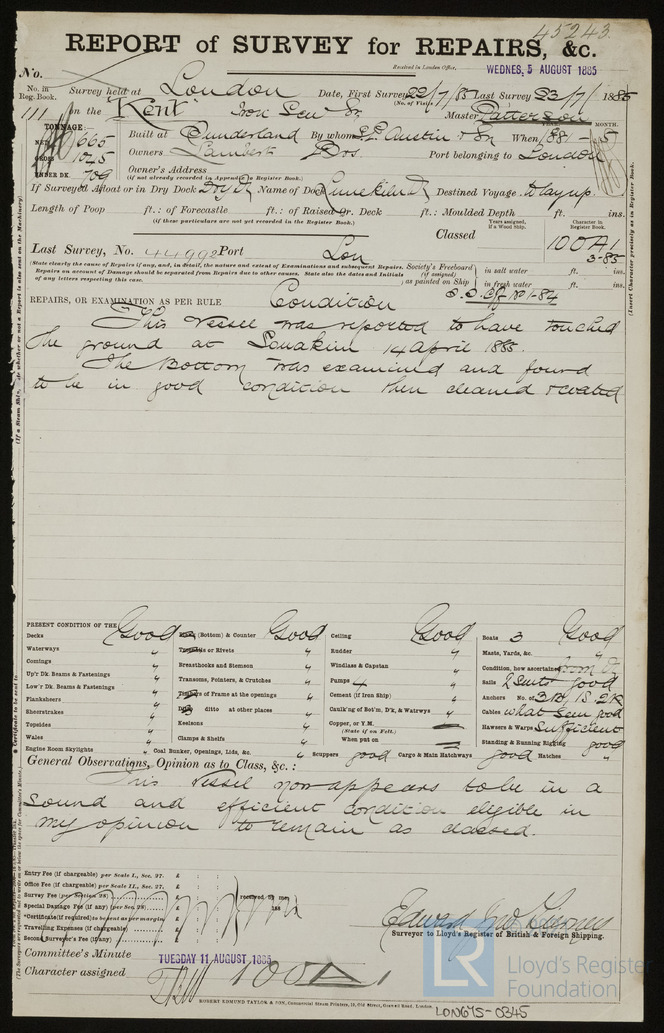 45243
REPORT of SURVEY for REPAIRS, &c.
Received in London Office, WEDNES, 5 AUGUST 1885
No.
No. in Reg. Book. Survey held at London Date, First Survey 22/7/85 Last Survey 23/7/1885
(No. of Visits
111 on the Kent Iron Master Patterson
TONNAGE.
NET 665 Built at Sunderland By whom S.P. Austin & Son When 1881 - 5
MONTH.
GROSS 1045 Owners Lambert Bros. Port belonging to London
UNDER DK. 709 Owner's Address
(if not already recorded in Appendix to Register Book.)
If Surveyed Afloat or in Dry Dock Dry Dk Name of Dock Limekiln Dk Destined Voyage to lay up.
Length of Poop ft.: of Forecastle ft.: of Raised Qr. Deck ft.: Moulded Depth ft. ins.
(if these particulars are not yet recorded in the Register Book.)
Years assigned, if a Wood Ship.
Character in Register Book.
Classed 100A1
3-85
Last Survey, No. 44992 Port Lon
(State clearly the cause of Repairs if any, and, in detail, the nature and extent of Examinations and subsequent Repairs.
Repairs on account of Damage should be separated from Repairs due to other causes. State also the dates and Initials
of any letters respecting this case.
Society's Freeboard (if assigned) as painted on Ship
in salt water ft. ins.
in fresh water ft. ins.
REPAIRS, OR EXAMINATION AS PER RULE Condition
No 1-84
This vessel was reported to have touched
the ground at Souakim 14 April 1885.
The Bottom was examined and found
to be in good condition then cleaned & coated
PRESENT CONDITION OF THE
Decks Good
Waterways "
Comings "
Up'r Dk Beams & Fastenings "
Low'r Dk. Beams & Fastenings "
Planksheers "
Sheerstrakes "
Topsides "
Wales "
Engine Room Skylights "
(Bottom) & Counter Good
Treenails or Rivets "
Breasthooks and Stemson "
Transoms, Pointers, & Crutches "
Timbers of Frame at the openings "
ditto at other places "
Keelsons "
Clamps & Shelfs "
Coal Bunker, Openings, Lids, &c. "
Ceiling Good
Rudder "
Windlass & Capstan "
Pumps 4 "
Cement (if Iron Ship) "
Caulk'ng of Bot'm, D'k, & Watrwys "
Copper, or Y.M.
(State if on Felt.)
When put on
Scuppers good
Cargo & Main Hatchways good
Boats 3 Good
Masts, Yards, &c. "
Condition, how ascertained from Dk
Sails 2 Suits good
Anchors No. of 3 B, 1 S. 2 K
Cables what seen good
Hawsers & Warps Sufficient
Standing & Running Rigging good
Hatches "
General Observations, Opinion as to Class, &c.:
This vessel now appears to be in a
sound and efficient condition eligible in
my opinion to remain as classed.
Entry Fee (if chargeable) per Scale I., Sec. 27. £ : :
Office Fee (if chargeable) per Scale II., Sec. 27. £ : :
Survey Fee (per Section 28) £
Special Damage Fee (if any) (per Sec. 28) £
Certificate (if required) to be sent as per margin
Travelling Expenses (if chargeable) £
Second Surveyor's Fee (if any) £
received by me,
188
Surveyor to Lloyd's Register of British & Foreign Shipping.
Committee's Minute TUESDAY 11 AUGUST 1885
Character assigned 100 A 1
ROBERT EDMUND TAYLOR & SON, Commercial Steam Printers, 19, Old Street, Goswell Road, London.
LR
Lloyd's Register
Foundation
LON675-0345